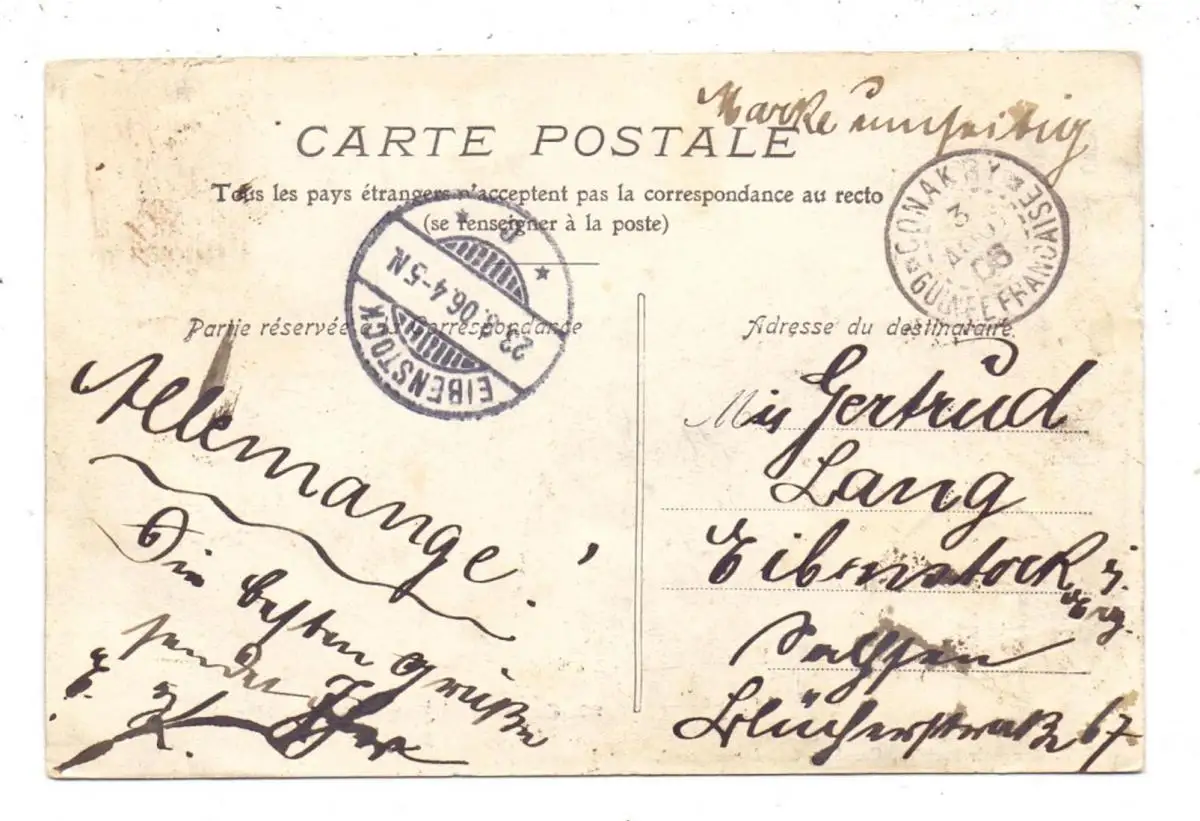 Marke umseitig
CARTE POSTALE
Tous les pays étrangers n'acceptent pas la correspondance au recto
(se renseigner à la poste)
CONAKRY
GUINÉE FRANÇAISE
3
06
EIBENSTOCK
23.8.06.4-5N
Partie réservée à la Correspondance
Allemange
Die besten Grüße
sendet Ihr
E. K.
Adresse du destinataire
Mis Gertrud
Lang
Eibenstock i.
Erzg.
Sachsen
Blücherstraße 67